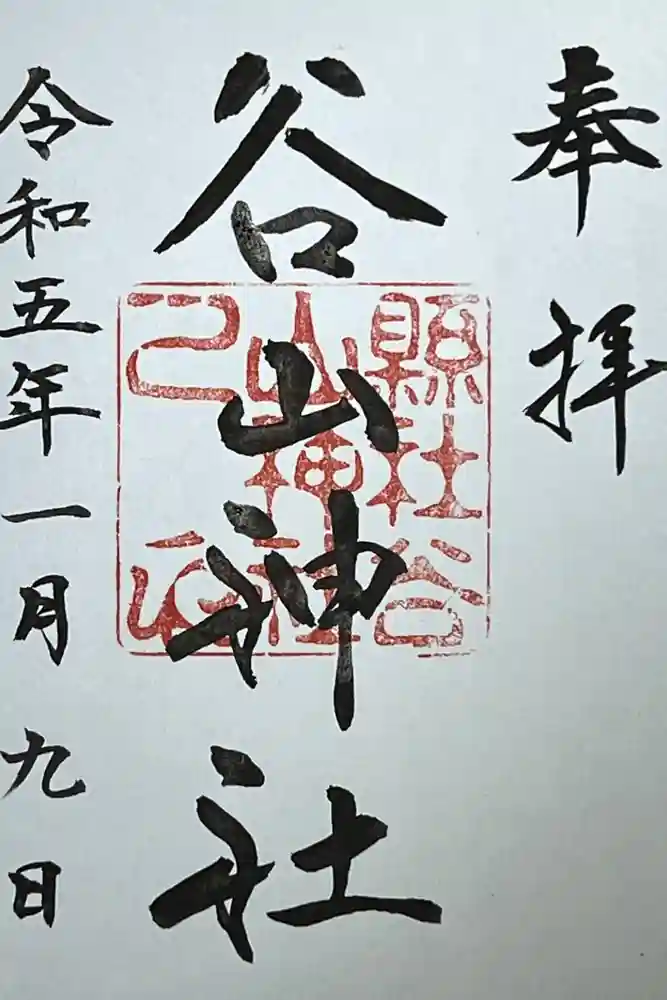 奉拝
縣社谷
山神社
之印
谷山神社
令和五年一月九日